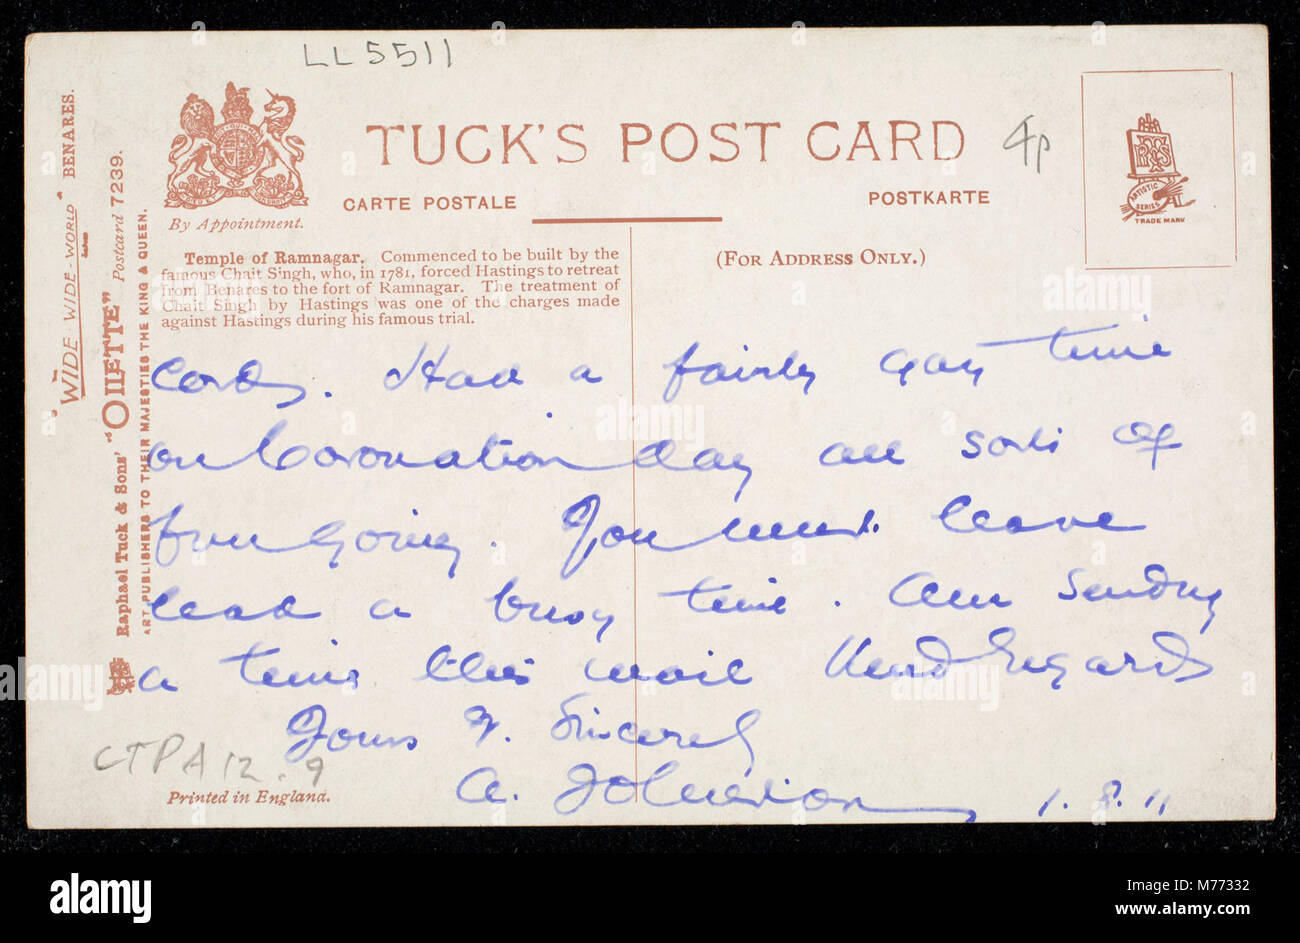 LL5511
TUCK'S POST CARD
4p
CARTE POSTALE
POSTKARTE
By Appointment.
ARTISTIC SERIES
TRADE MARK
(FOR ADDRESS ONLY.)
Temple of Ramnagar. Commenced to be built by the
famous Chait Singh, who, in 1781, forced Hastings to retreat
from Benares to the fort of Ramnagar. The treatment of
Chait Singh by Hastings was one of the charges made
against Hastings during his famous trial.
"WIDE-WIDE-WORLD" BENARES.
Raphael Tuck & Sons' "OILETTE" Postcard 7239.
ART PUBLISHERS TO THEIR MAJESTIES THE KING & QUEEN.
Cards. Had a fairly gay time
on Coronation day all sorts of
fun going. You must leave
lead a busy time. Am sending
a this mail Kind Regards
Yours V. Sincerely
A. Johnston 1.8.11
CTPA 12.9
Printed in England.
alamy
alamy
Image ID: M77332
www.alamy.com